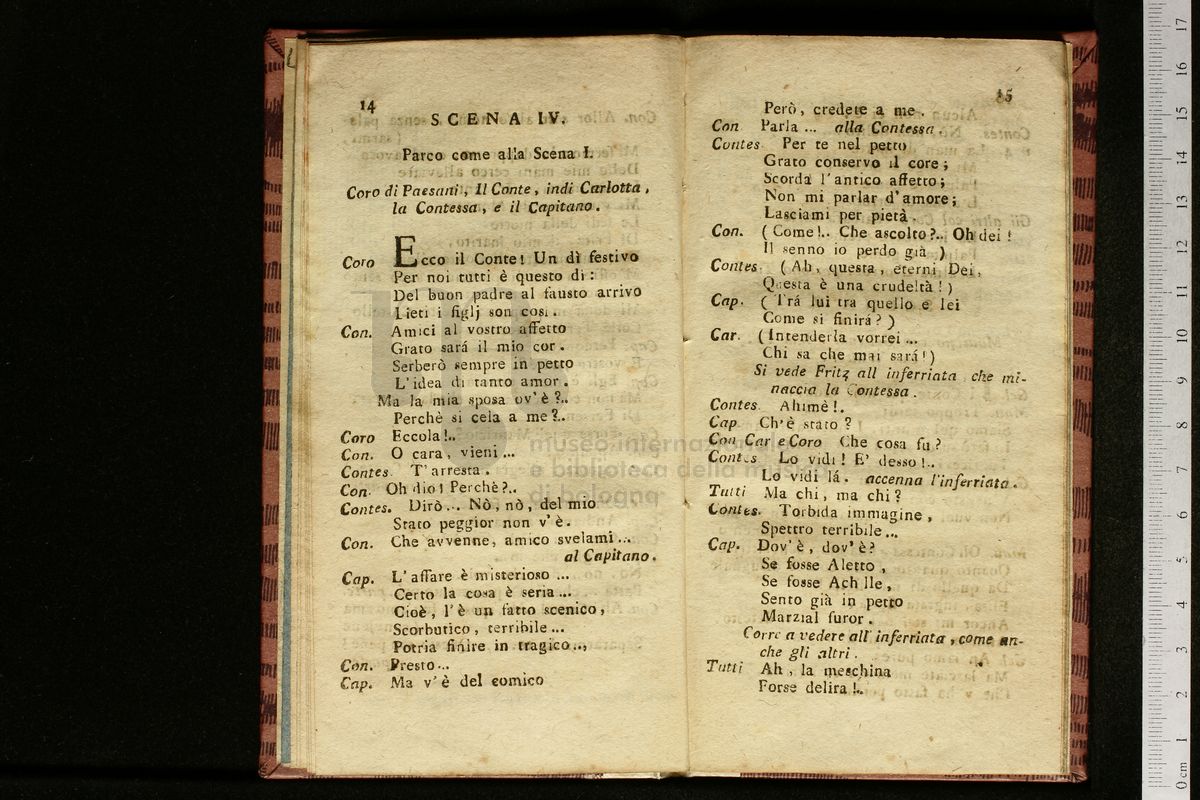 14
SCENA IV.
Parco come alla Scena I.
Coro di Paesani, Il Conte, indi Carlotta,
la Contessa, e il Capitano.
Coro Ecco il Conte! Un dì festivo
Per noi tutti è questo dì:
Del buon padre al fausto arrivo
Lieti i figlj son così.
Con. Amici al vostro affetto
Grato sará il mio cor.
Serberò sempre in petto
L'idea di tanto amor.
Ma la mia sposa ov'è?..
Perchè si cela a me?..
Coro Eccola!..
Con. O cara, vieni...
Contes. T'arresta.
Con. Oh dio! Perchè?..
Contes. Dirò... Nò, nò, del mio
Stato peggior non v'è.
Con. Che avvenne, amico svelami...
al Capitano.
Cap. L'affare è misterioso...
Certo la cosa è seria...
Cioè, l'è un fatto scenico,
Scorbutico, terribile...
Potria finire in tragico..,
Con. Presto...
Cap. Ma v'è del comico
15
Però, credete a me.
Con Parla... alla Contessa.
Contes Per te nel petto
Grato conservo il core;
Scorda l'antico affetto;
Non mi parlar d'amore;
Lasciami per pietà.
Con. (Come!.. Che ascolto?.. Oh dei!
Il senno io perdo già.)
Contes. (Ah, questa, eterni Dei,
Questa è una crudeltà!)
Cap. (Trá lui tra quello e lei
Come si finirá?)
Car. (Intenderla vorrei...
Chi sa che mai sará!)
Si vede Fritz all inferriata che mi-
naccia la Contessa.
Contes. Ahimè!.
Cap. Ch'è stato?
Con Car e Coro Che cosa fu?
Contes Lo vidi! E' desso!..
Lo vidi lá. accenna l'inferriata.
Tutti Ma chi, ma chi?
Contes. Torbida immagine,
Spettro terribile...
Cap. Dov'è, dov'è?
Se fosse Aletto,
Se fosse Ach lle,
Sento già in petto
Marzial furor.
Corre a vedere all'inferriata, come an-
che gli altri.
Tutti Ah, la meschina
Forse delira!..
museo internazionale
e biblioteca della musica
di bologna
0 cm 1 2 3 4 5 6 7 8 9 10 11 12 13 14 15 16 17